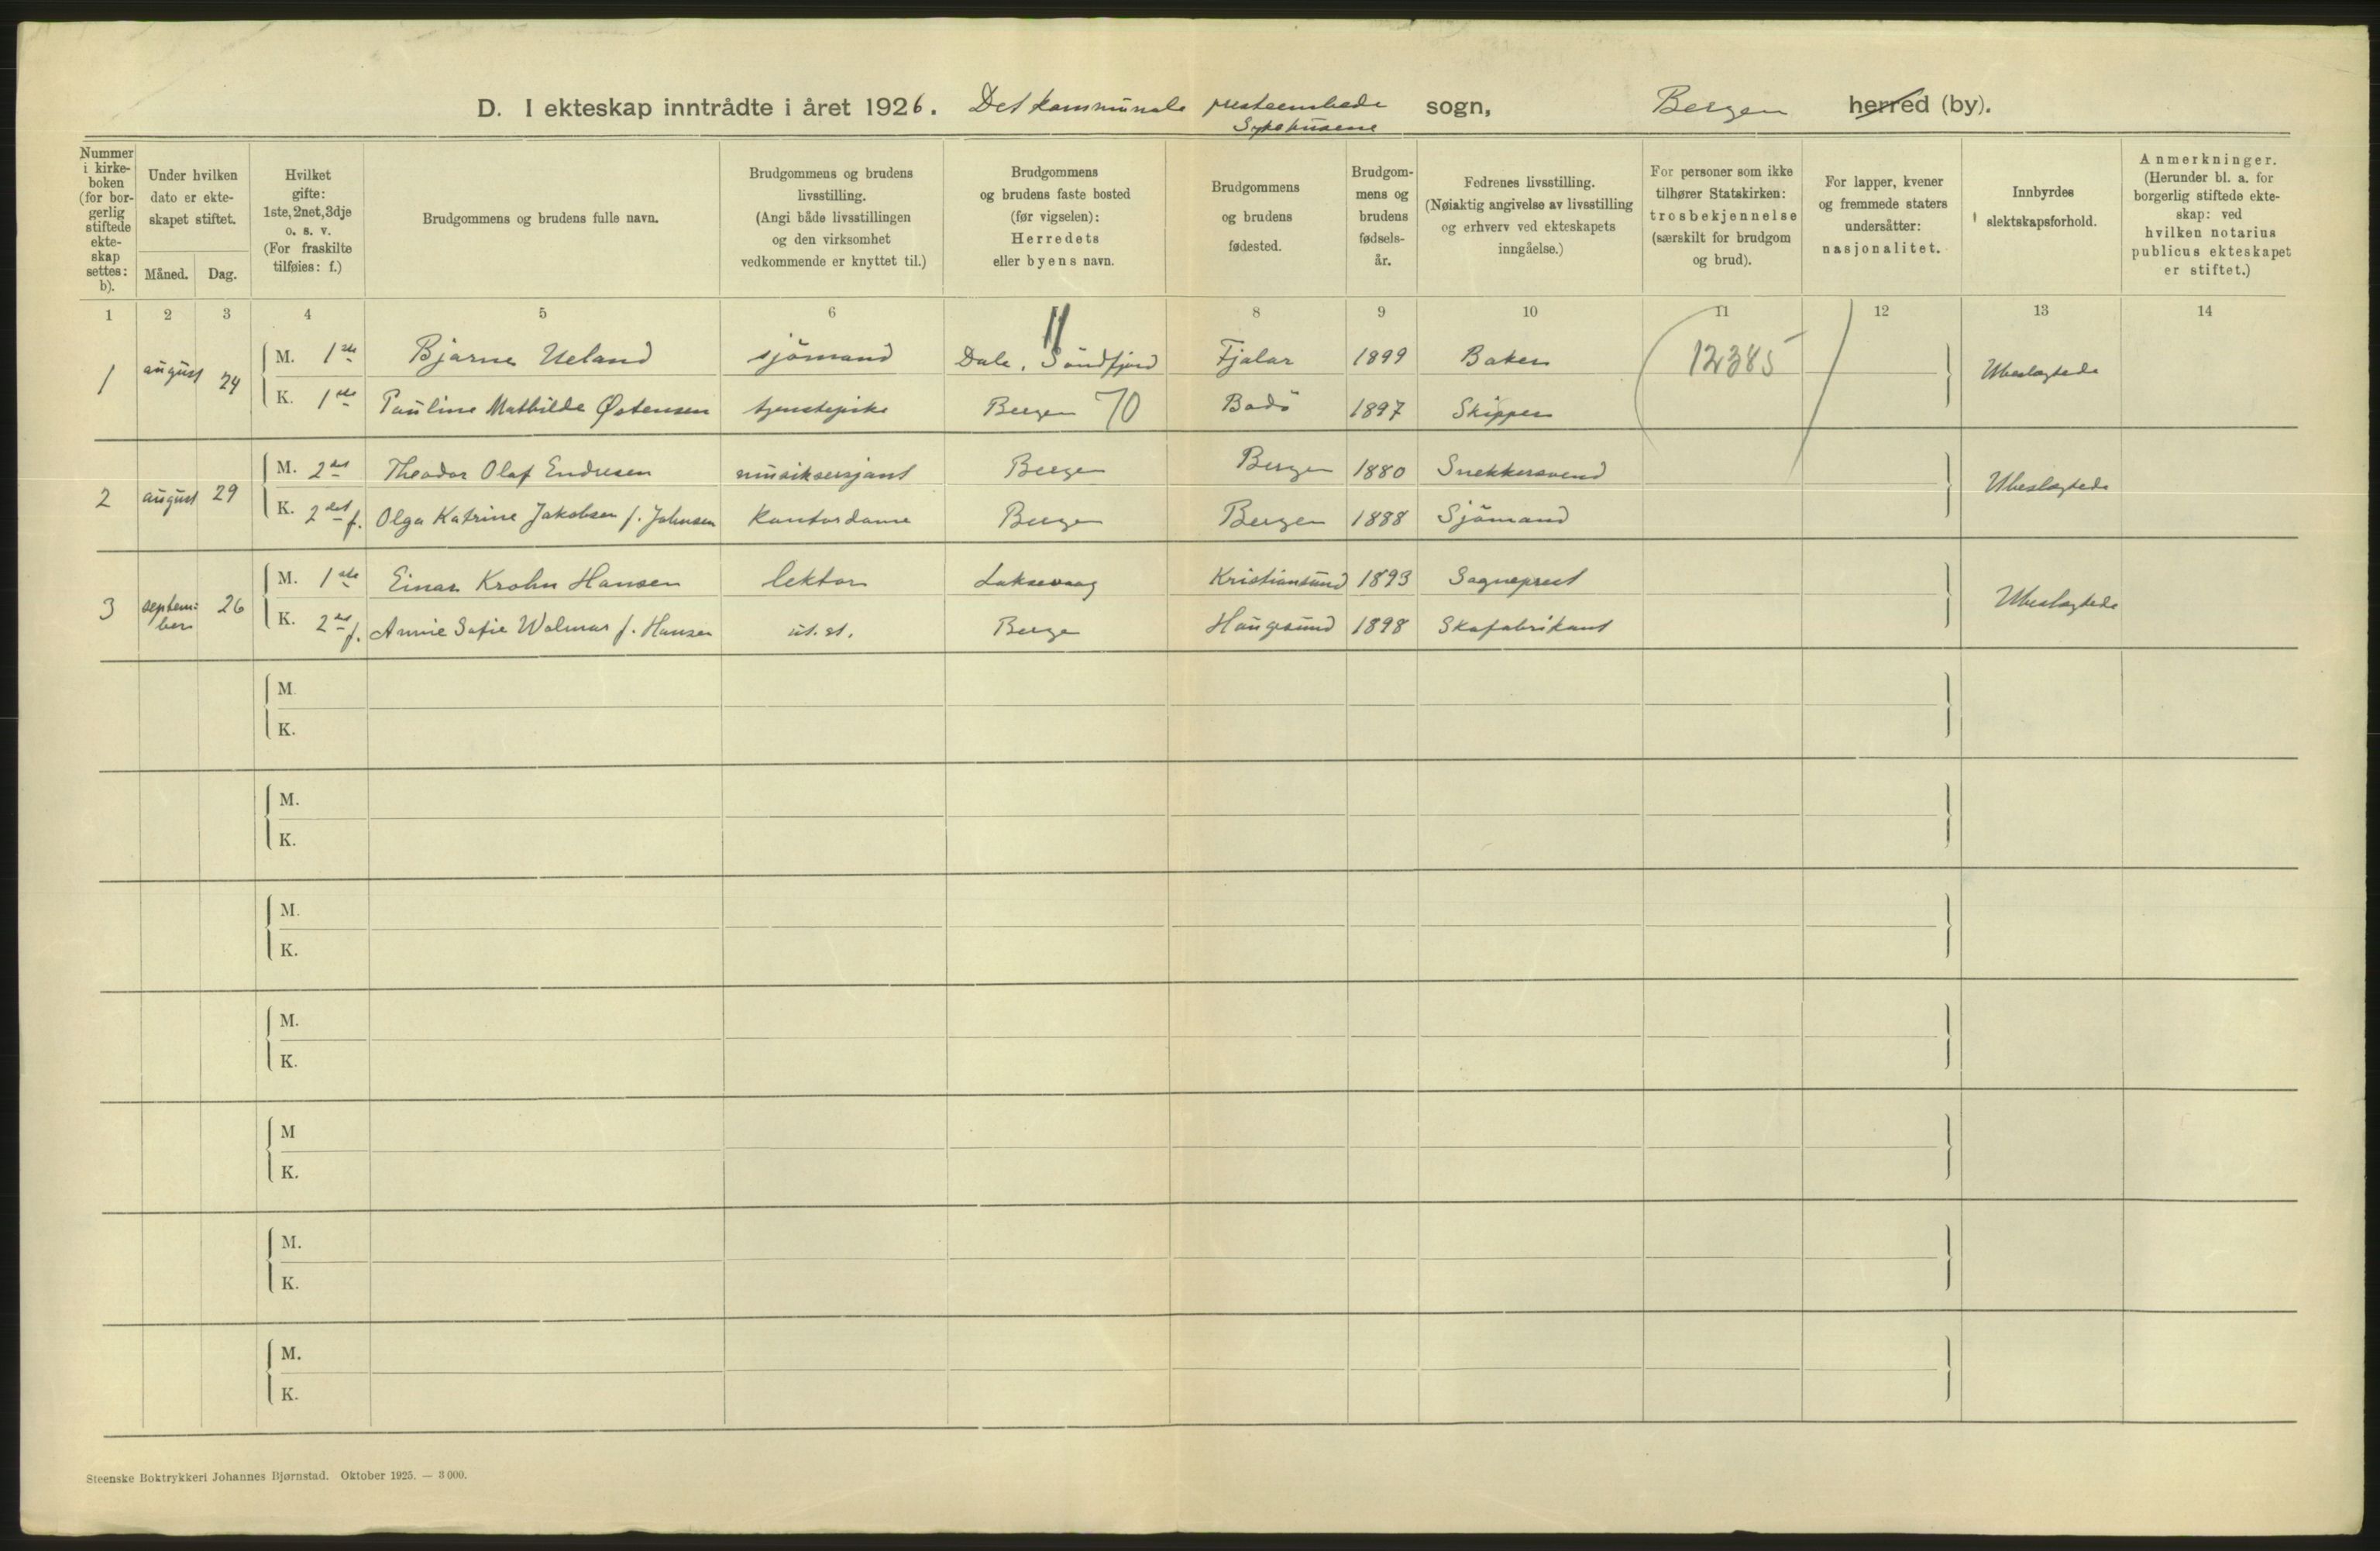 D. I ekteskap inntrådte i året 1926. Det kommunale presteembede sogn, Bergen herred (by).
Sykehusene
Nummer i kirke-boken (for bor-gerlig stiftede ekte-skap settes: b).
Under hvilken dato er ekte-skapet stiftet.
Måned. Dag.
Hvilket gifte: 1ste, 2net, 3dje o. s. v. (For fraskilte tilføies: f.)
Brudgommens og brudens fulle navn.
Brudgommens og brudens livsstilling. (Angi både livsstillingen og den virksomhet vedkommende er knyttet til.)
Brudgommens og brudens faste bosted (før vigselen): Herredets eller byens navn.
Brudgommens og brudens fødested.
Brudgom-mens og brudens fødsels-år.
Fedrenes livsstilling. (Nøiaktig angivelse av livsstilling og erhverv ved ekteskapets inngåelse.)
For personer som ikke tilhører Statskirken: trosbekjennelse (særskilt for brudgom og brud).
For lapper, kvener og fremmede staters undersåtter: nasjonalitet.
Innbyrdes slektskapsforhold.
Anmerkninger. (Herunder bl. a. for borgerlig stiftede ekte-skap: ved hvilken notarius publicus ekteskapet er stiftet.)
1 2 3 4 5 6 8 9 10 11 12 13 14
1 august 24 M. 1ste Bjarne Ueland sjömand Dale, Söndfjord Fjalar 1899 Baker 12385 Ubeslegtede
K. 1ste Pauline Mathilde Østensen tjenestepike Bergen 70 Bodö 1897 Skipper
2 august 29 M. 2det Theodor Olaf Endresen musiksersjant Bergen Bergen 1880 Snekkersvend Ubeslegtede
K. 2det f. Olga Katrine Jakobsen f. Johnsen Kontordame Bergen Bergen 1888 Sjömand
3 septem:ber 26 M. 1ste Einar Krohn Hansen lektor Laksevaag Kristiansund 1893 Sogneprest Ubeslegtede
K. 2det f. Annie Sofie Wolmar f. Hansen ut. st. Bergen Haugesund 1898 Skofabrikant
M.
K.
M.
K.
M.
K.
M.
K.
M
K.
M.
K.
M.
K.
Steenske Boktrykkeri Johannes Bjørnstad. Oktober 1925. — 3 000.